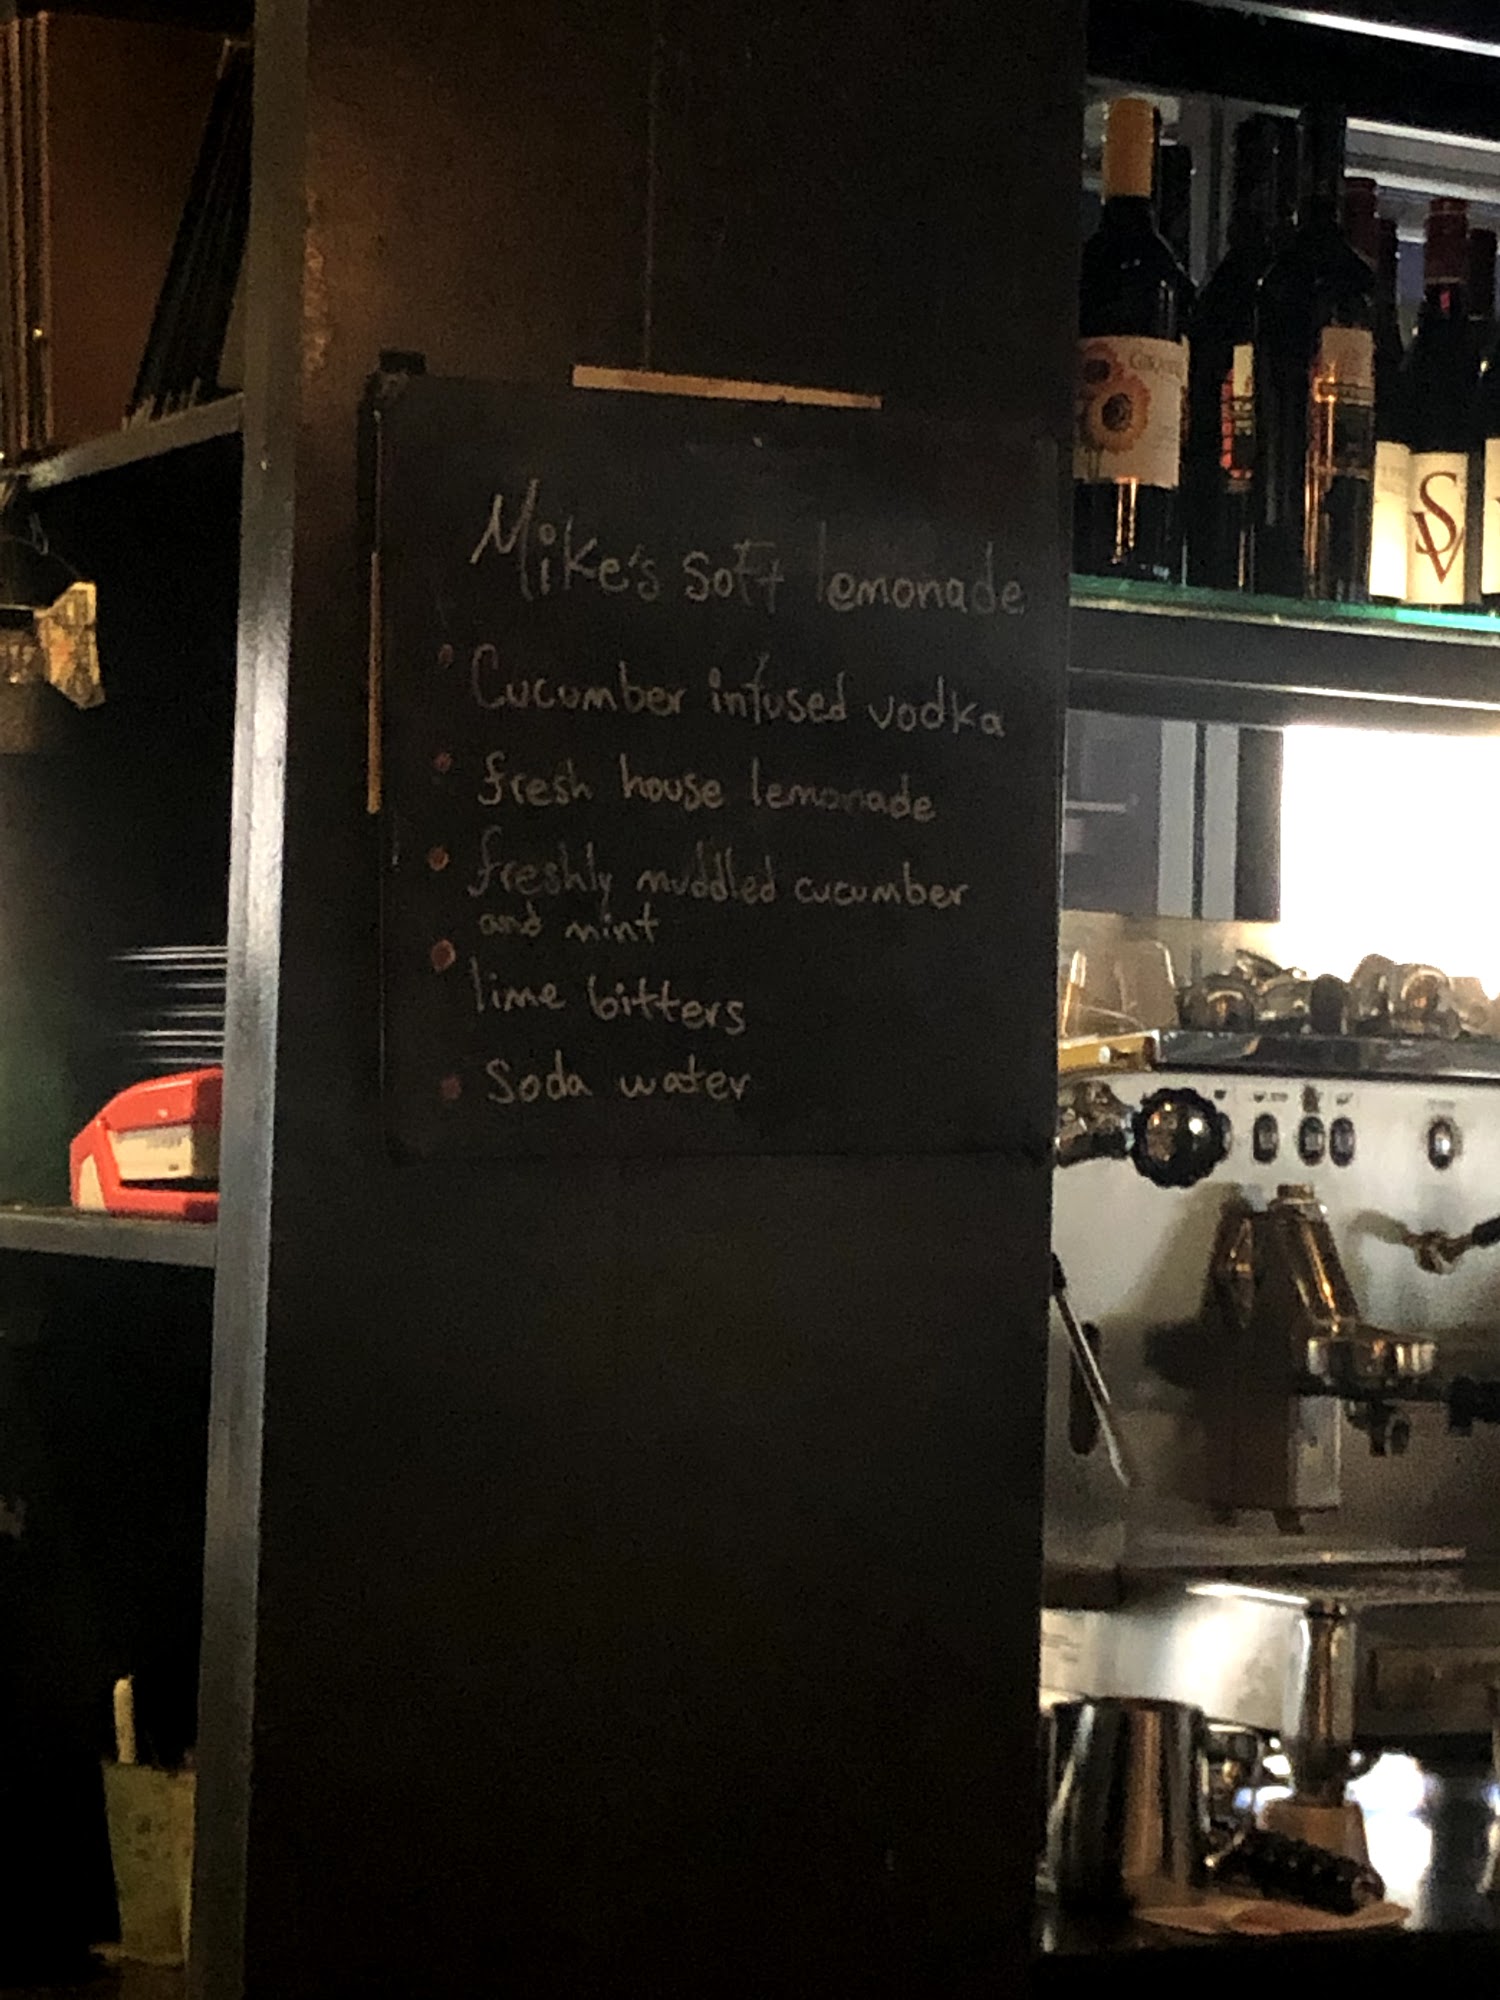 Mike's soft lemonade
• Cucumber infused vodka
• fresh house lemonade
• freshly muddled cucumber
and mint
• lime bitters
• Soda water
SV